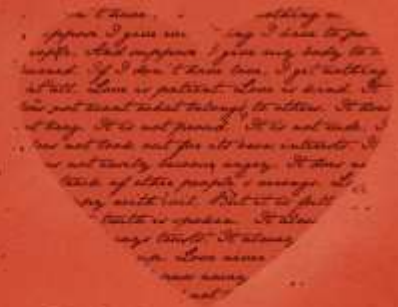 n't have
suppose I give
ing I have to
people. And suppose I give my body to
burned. If I don't have love, I get nothing
at all. Love is patient. Love is kind. It
does not want what belongs to others. It does
not brag. It is not proud. It is not rude. I
does not look out for its own interests. It
not easily become angry. It does
track of other people's wrongs.
with evil. But it is full
truth is spoken. It
ays trusts. It always
up. Love never
away
not